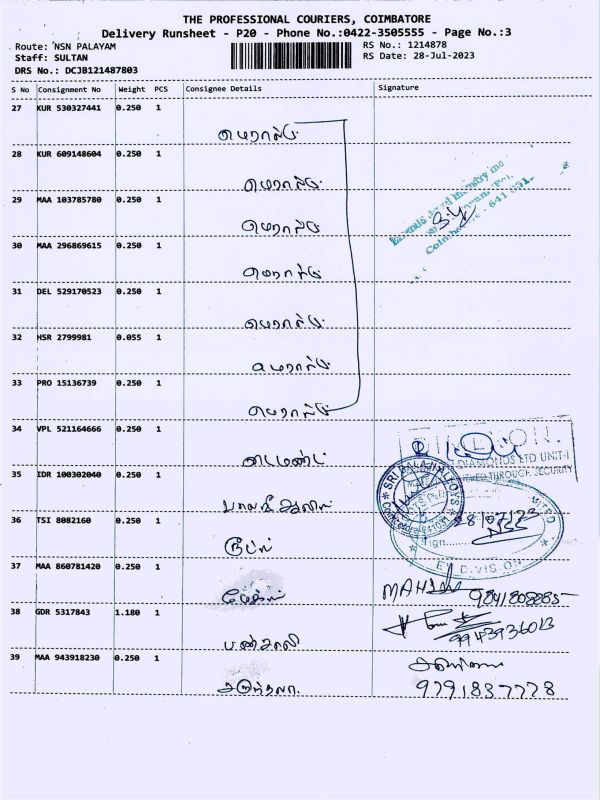 THE PROFESSIONAL COURIERS, COIMBATORE
Delivery Runsheet - P20 - Phone No.:0422-3505555 - Page No.:3
Route: NSN PALAYAM
Staff: SULTAN
DRS No.: DCJB121487803
RS No.: 1214878
RS Date: 28-Jul-2023
S No Consignment No Weight PCS Consignee Details Signature
27 KUR 530327441 0.250 1
எமரால்டு
28 KUR 609148604 0.250 1
எமரால்டு
29 MAA 103785780 0.250 1
எமரால்டு
30 MAA 296869615 0.250 1
எமரால்டு
31 DEL 529170523 0.250 1
எமரால்டு
32 HSR 2799981 0.055 1
எமரால்டு
33 PRO 15136739 0.250 1
எமரால்டு
Coimbatore - 641 031.
34 VPL 521164666 0.250 1
டைமண்ட்
DIAMONDS LTD UNIT-I
THROUGH SECURITY
35 IDR 100302040 0.250 1
SRI BALAJI ALLOYS
36 TSI 8082160 0.250 1
28/07/23
37 MAA 860781420 0.250 1
9841808885
38 GDR 5317843 1.180 1
பன்சாலி
9943936013
39 MAA 943918230 0.250 1
9791837778